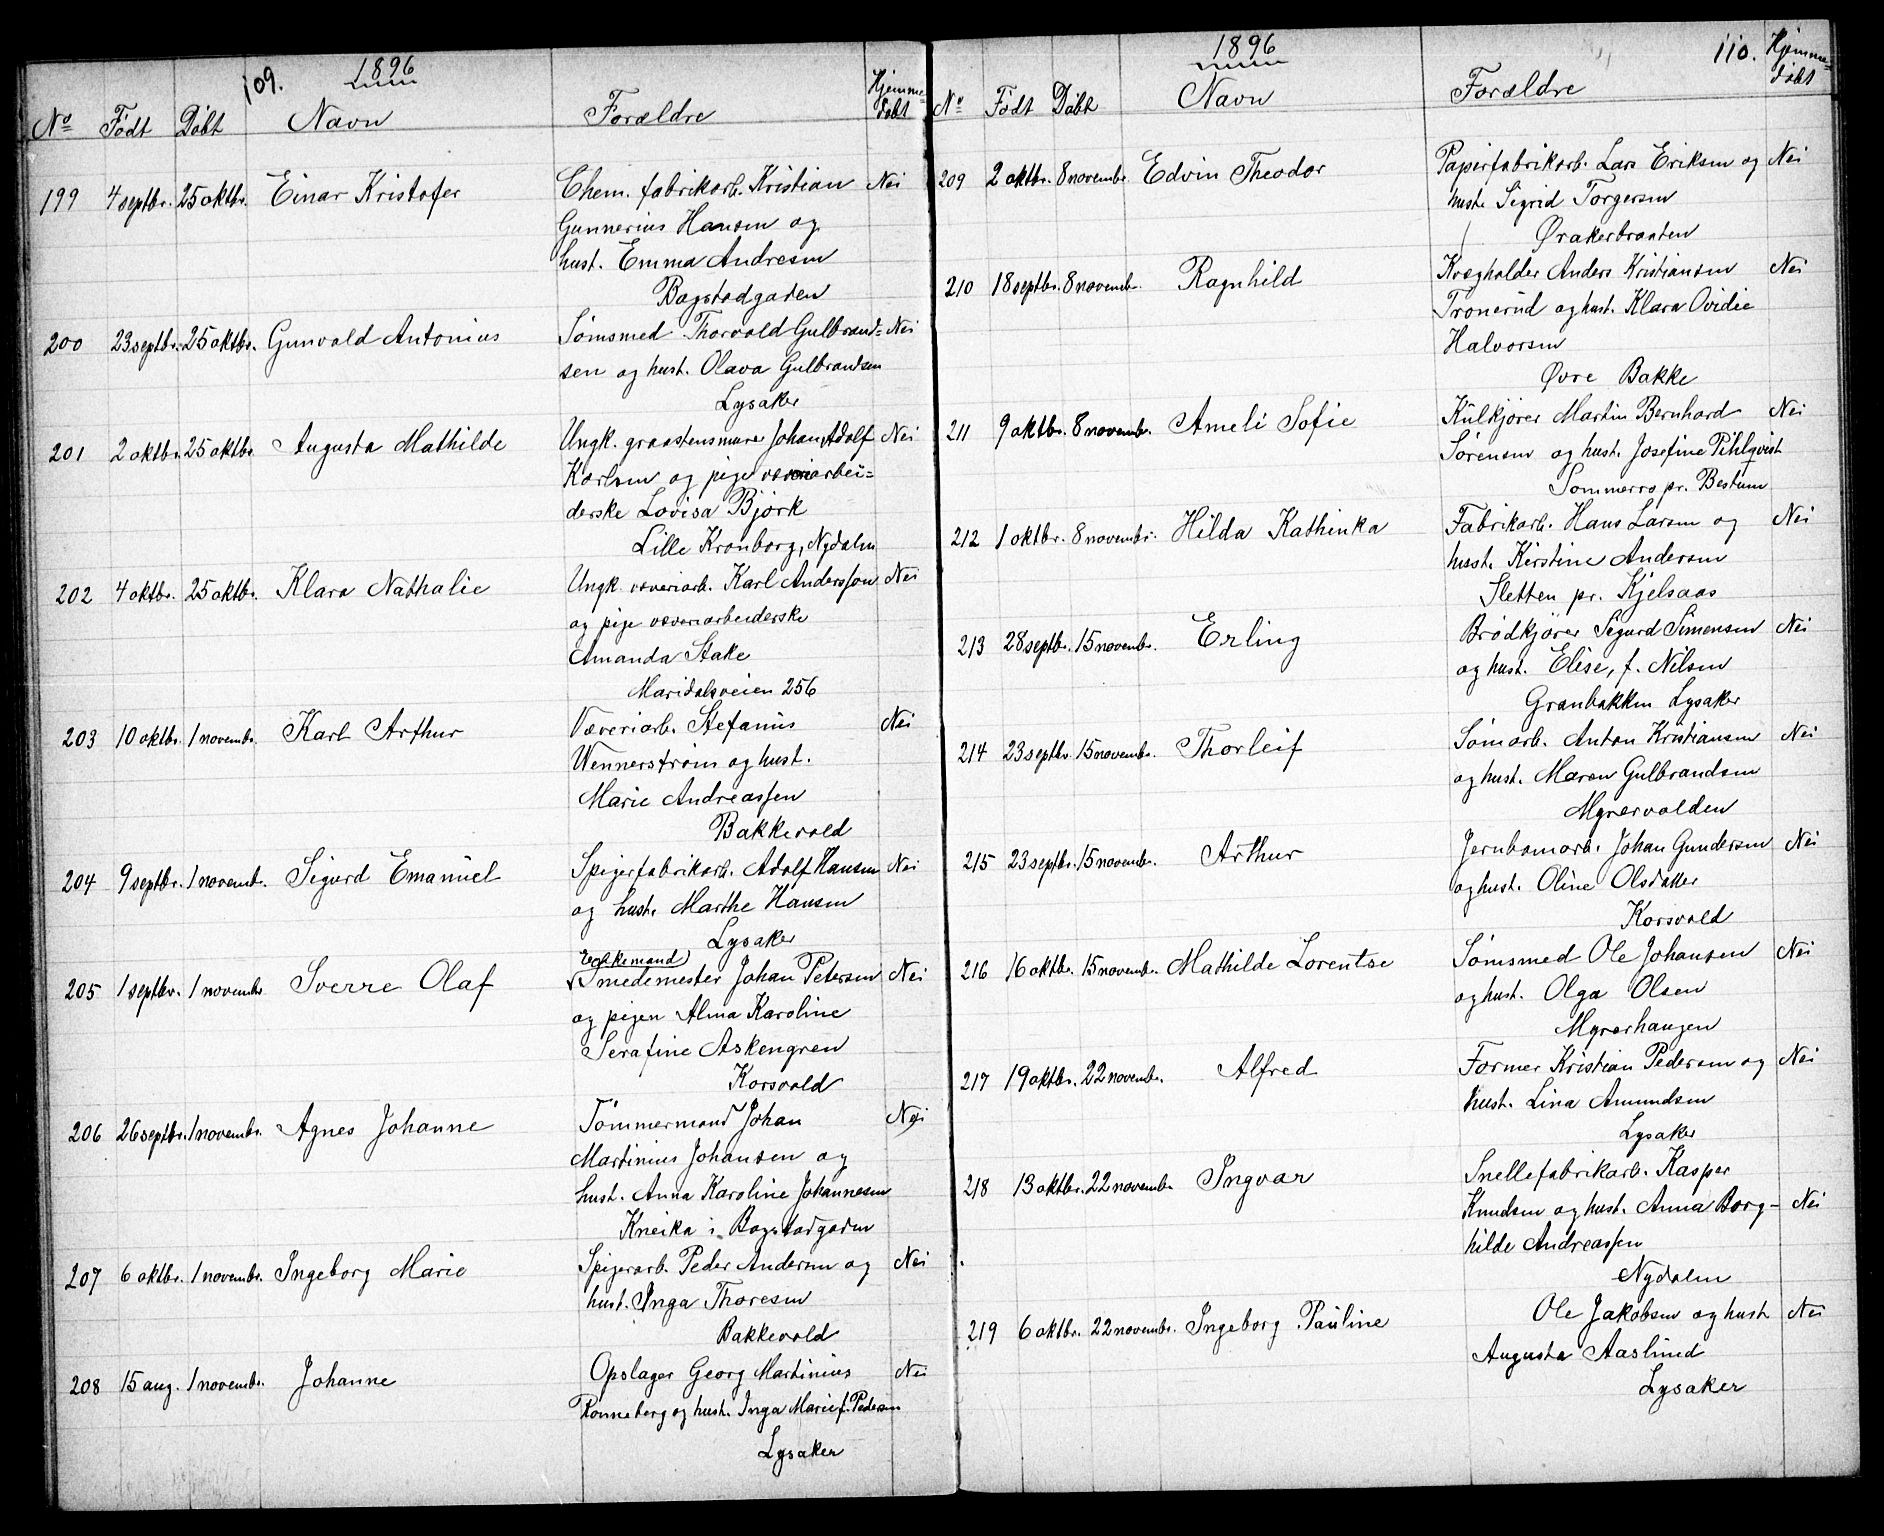 109.
1896
No Født Døbt Navn Forældre Hjemme-
døbt
199 4 septbr. 25 oktbr. Einar Kristofer Chem. fabrikarb. Kristian Nei
Gunnerius Hansen og
hust. Emma Andresen
Bogstadgaden
200 23 septbr. 25 oktbr. Gunvald Antonius Sømsmed Thorvald Gulbrand- Nei
sen og hust. Olava Gulbrandsen
Lysaker
201 2 oktbr. 25 oktbr. Augusta Mathilde Ungk. graastensmurer Johan Adolf Nei
Karlsen og pige væveriarbei-
derske Lovisa Bjørk
Lille Kronborg, Nydalen
202 4 oktbr. 25 oktbr. Klara Nathalie Ungk. væveriarb. Karl Andersson Nei
og pige væveriarbeiderske
Amanda Stake
Maridalsveien 256
203 10 oktbr. 1 novembr. Karl Arthur Væveriarb. Stefanus Nei
Wennerstrøm og hust.
Marie Andreassen
Bakkevold
204 9 septbr. 1 novembr. Sigurd Emanuel Spigerfabrikarb. Adolf Hansen Nei
og hust. Marthe Hansen
Lysaker
Enkemand
205 1 septbr. 1 novembr. Sverre Olaf Smedemester Johan Petersen Nei
og pigen Alma Karoline
Serafine Askengren
Korsvold
206 26 septbr. 1 novembr. Agnes Johanne Tømmermand Johan Nei
Martinius Johansen og
hust. Anna Karoline Johannesen
Kneika i Bogstadgaden
207 6 oktbr. 1 novembr. Ingeborg Marie Spigerarb. Peder Andersen og Nei
hust. Inga Thoresen
Bakkevold
208 15 aug. 1 novembr. Johanne Opslager Georg Martinius Nei
Ronneberg og hust. Inga Marie f. Pedersen
Lysaker
1896
110.
No Født Døbt Navn Forældre Hjemme-
døbt
209 2 oktbr. 8 novembr. Edvin Theodor Papirfabrikarb. Lars Eriksen og Nei
hust. Sigrid Torgersen
Ørakerbraaten
210 18 septbr. 8 novembr. Ragnhild Kvægholder Anders Kristiansen Nei
Tronerud og hust. Klara Ovidie
Halvorsen
Øvre Bakke
211 9 oktbr. 8 novembr. Ameli Sofie Kulkjører Martin Bernhard Nei
Sørensen og hust. Josefine Pihlqvist
Sommerro pr. Bestum
212 1 oktbr. 8 novembr. Hilda Kathinka Fabrikarb. Hans Larsen og Nei
hust. Kirstine Andersen
Sletten pr. Kjelsaas
213 28 septbr. 15 novembr. Erling Brødkjører Sigurd Simensen Nei
og hust. Elise, f. Nilsen
Granbakken Lysaker
214 23 septbr. 15 novembr. Thorleif Sømarb. Anton Kristiansen Nei
og hust. Maren Gulbrandsen
Myrervolden
215 23 septbr. 15 novembr. Arthur Jernbanearb. Johan Gundersen Nei
og hust. Oline Olsdatter
Korsvold
216 16 oktbr. 15 novembr. Mathilde Lorentse Sømsmed Ole Johansen Nei
og hust. Olga Olsen
Myrerhaugen
217 19 oktbr. 22 novembr. Alfred Former Kristian Pedersen og Nei
hust. Lina Amundsen
Lysaker
218 13 oktbr. 22 novembr. Ingvar Snellefabrikarb. Kasper
Knudsen og hust. Anna Borg- Nei
hilde Andreassen
Nydalen
219 6 oktbr. 22 novembr. Ingeborg Pauline Ole Jakobsen og hust. Nei
Augusta Aaslund
Lysaker